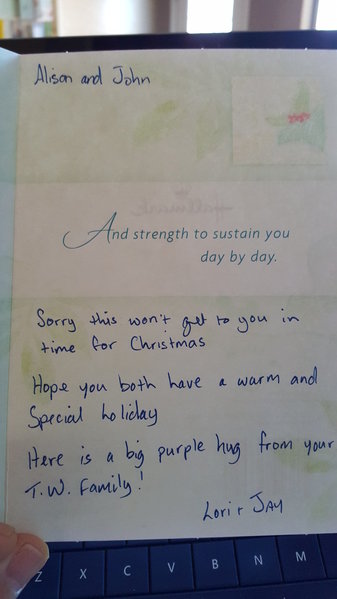 Alison and John
Hallmark
And strength to sustain you
day by day.
Sorry this won't get to you in
time for Christmas
Hope you both have a warm and
Special holiday
Here is a big purple hug from your
T.W. Family!
Lori + JAY
Z X C V B N M